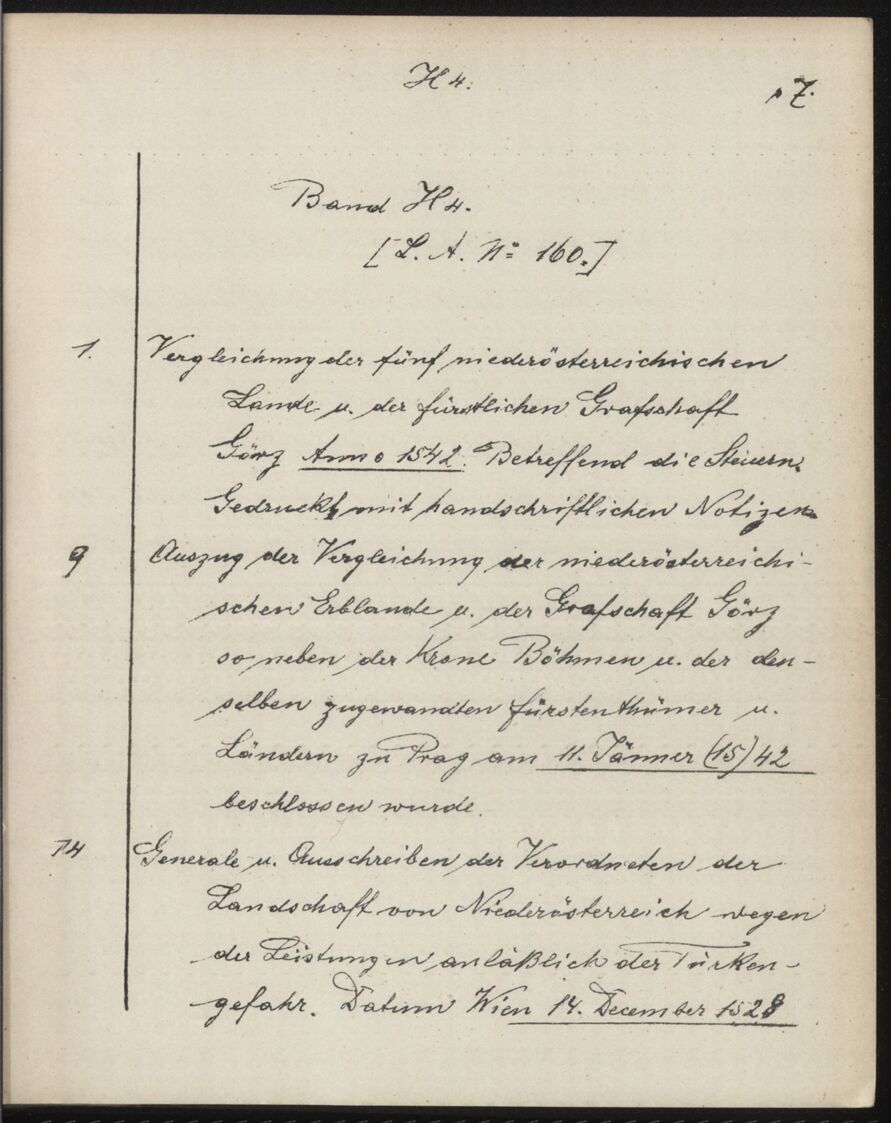 H 4.
7.
Band H 4.
[L. A. No 160.]
1. Vergleichung der fünf niederösterreichischen
Lande u. der fürstlichen Grafschaft
Görz Anno 1542. Betreffend die Steuern.
Gedruckt mit handschriftlichen Notizen
9 Auszug der Vergleichung der niederösterreichi-
schen Erblande u. der Grafschaft Görz
so neben der Krone Böhmen u. der den-
selben zugewandten Fürstenthümer u.
Ländern zu Prag am 11. Jänner (15)42
beschlossen wurde.
14 Generale u. Ausschreiben der Verordneten der
Landschaft von Niederösterreich wegen
der Leistungen anläßlich der Türken-
gefahr. Datum Wien 14. December 1528